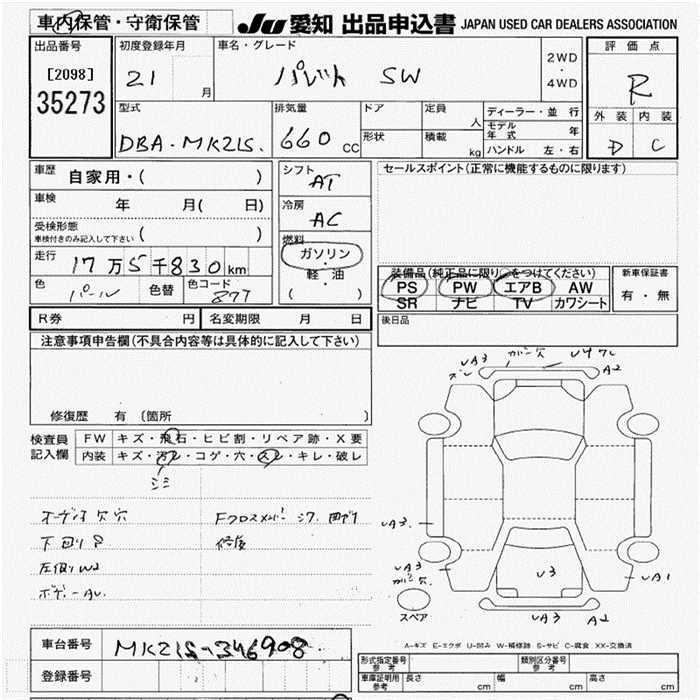 車内保管・守衛保管 JU 愛知 出品申込書 JAPAN USED CAR DEALERS ASSOCIATION
出品番号 初度登録年月 車名・グレード 評価点
[2098] 21 月 パレット SW 2WD・4WD R
35273
型式 排気量 ドア 定員 人 ディーラー・並行 外装 内装
DBA-MK21S. 660 cc 形状 積載 kg モデル年式 年 D C
ハンドル 左・右
車歴 自家用・( ) シフト AT セールスポイント(正常に機能するものに限ります)
車検 年 月( 日) 冷房 AC
受検形態 ( )
車検付きのみ記入して下さい
燃料 ガソリン・軽・油 ( )
走行 17万5千830km 装備品(純正品に限り○をつけてください) 新車保証書
PS PW エアB AW 有・無
色 パール 色替 色コード 877 SR ナビ TV カワシート
R券 円 名変期限 月 日 後日品
注意事項申告欄(不具合内容等は具体的に記入して下さい)
修復歴 有 〔箇所 〕
検査員記入欄 FW キズ・飛石・ヒビ割・リペア跡・X要
内装 キズ・汚れ・コゲ・穴・スレ・キレ・破レ
シミ
オーディオ欠穴 Fクロスメンバー
下回りS 修復
左側りW2
ボデーAU.
UA3 ガリ欠 U4ワレ
ズレ A2
UA3.
UA3 U3 UA1
ガリ欠.
スペア UA3 A2
A-キズ E-エクボ U-凹み W-補修跡 S-サビ C-腐食 XX-交換済
車台番号 MK21S-346908
登録番号
形式指定番号 参考 類別区分番号 参考
車庫証明用 参考 長さ cm 幅 cm 高さ cm